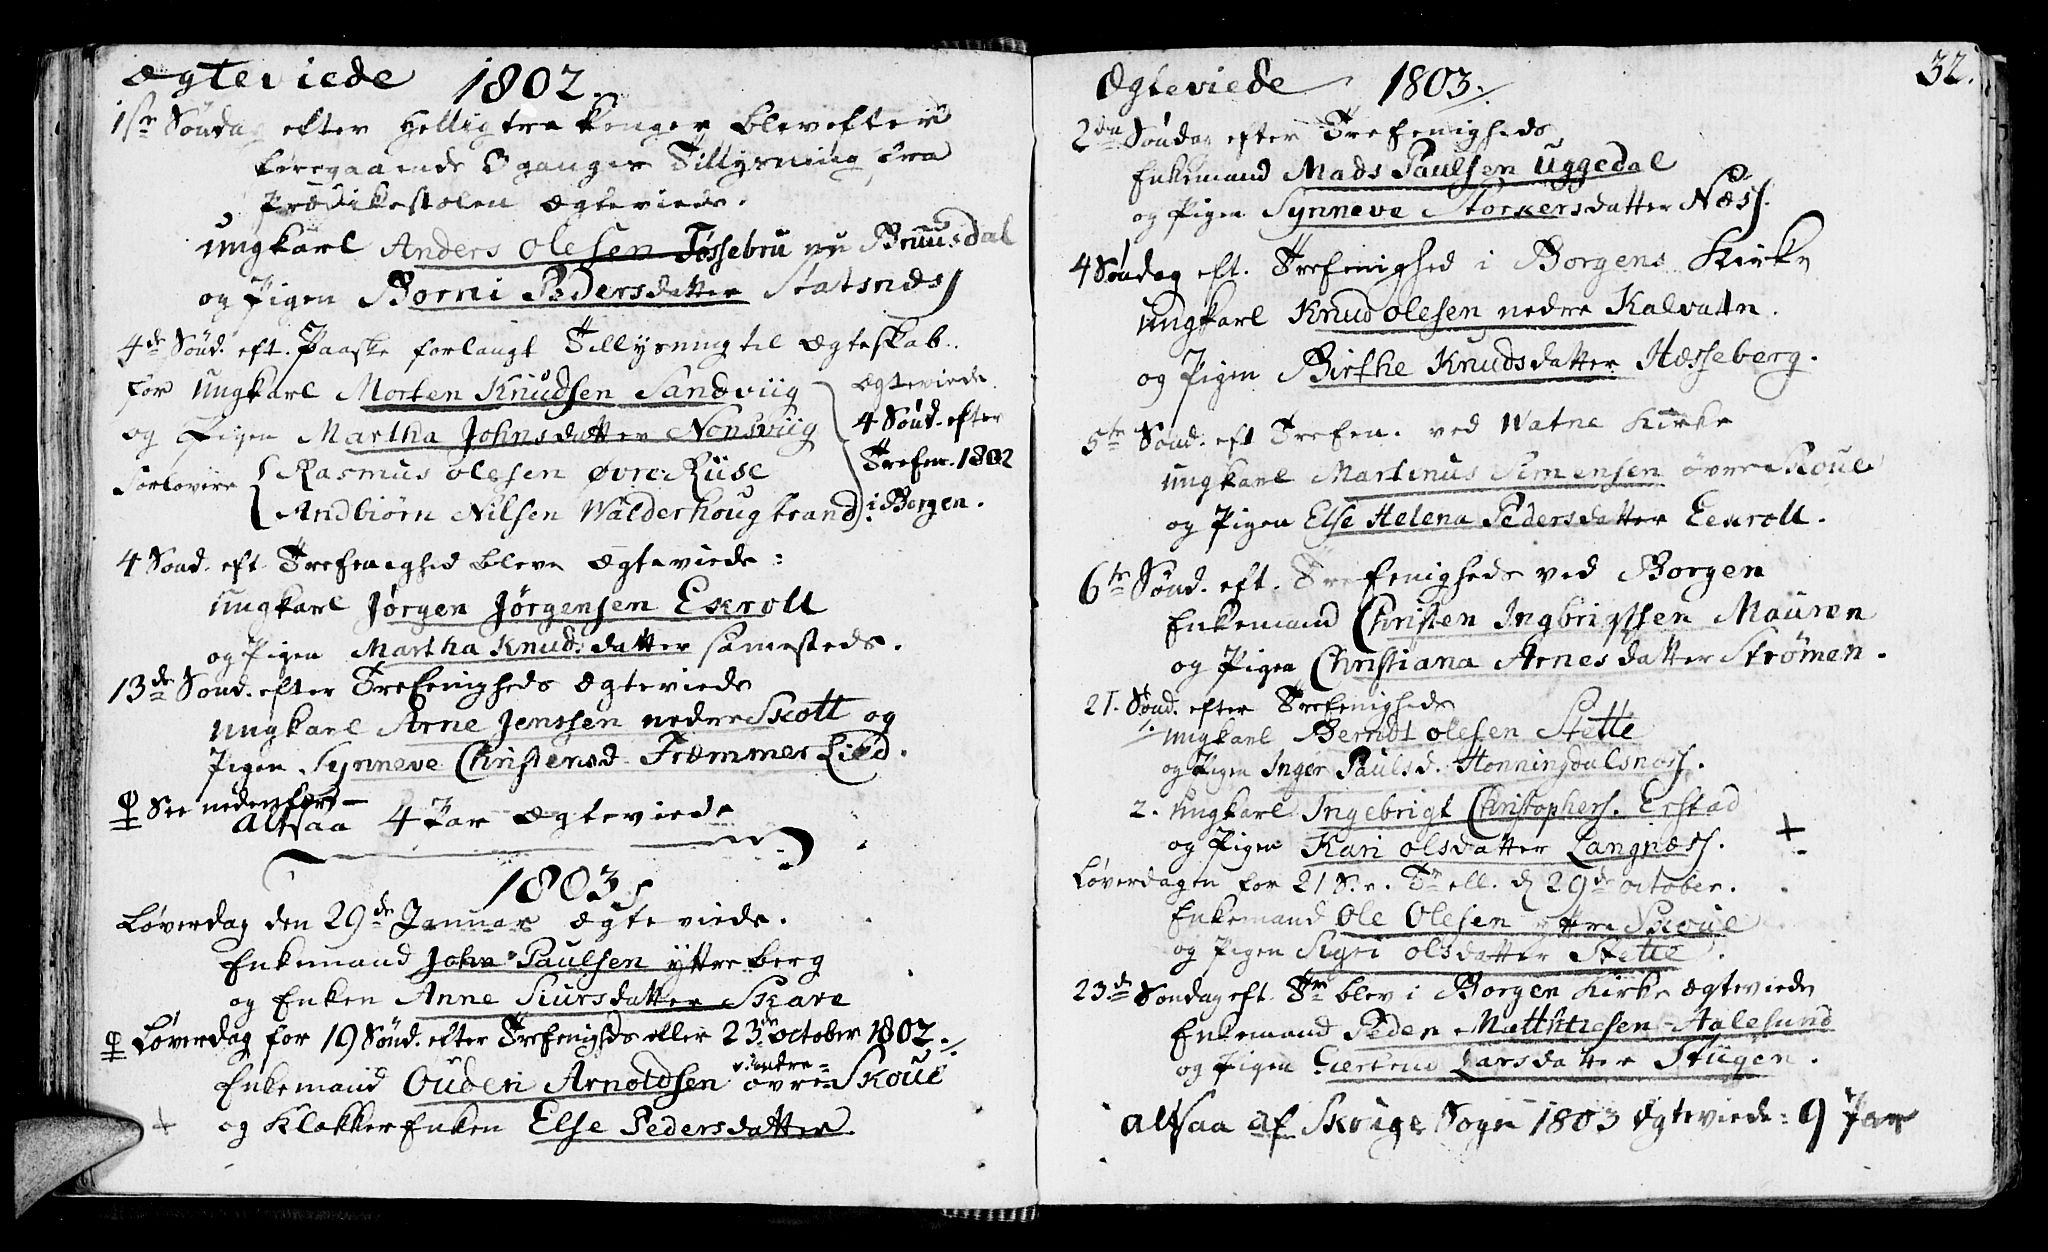 Ægteviede 1802.
1ste Søndag efter Hellig tre konger blev efter
foregaaende 3 ganger Tillysning fra
Prædikestolen Ægteviede.
Ungkarl Anders Olesen Fossebru nu Bruusdal
og Pigen Borni Pedersdatter Statsnæs
4de Sønd. eft. Paaske forlangt Tillysning til Ægteskab.
for Ungkarl Morten Knudsen Sandviig
og Pigen Martha Johnsdatter Nonsviig
Forlovere Rasmus Olesen Øvre Riise
Andbiørn Nilsen Walderhougstrand
Ægteviede
4 Sønd. efter
Trefen. 1802
i Borgen.
4 Sønd. eft. Trefenighed bleve Ægteviede:
Ungkarl Jørgen Jørgensen Exroll
og Pigen Martha Knudsdatter samesteds.
13de Sønd. efter Trefenigheds Ægteviede
Ungkarl Arne Jenssen nedre Skott og
Pigen Synneve Christensd. Fræmmerlied.
See nedenfor
Altsaa 4 Par Ægteviede
1803
Løverdag den 29de Januar Ægteviede.
Enkemand John Paulsen yttre berg
og Enken Anne Siursdatter Skare
Løverdag for 19 Sønd. efter Trefenigheds eller 23de october 1802.
Enkemand Ouden Arnoldsen øvre Skoue
og Klokker Enken Else Pedersdatter
32.
Ægteviede 1803.
2den Søndag efter Trefenigheds
Enkemand Mads Paulsen Uggedal
og Pigen Synneve Storkersdatter Næss.
4 Søndag eft. Trefenighed i Borgens Kirke
Ungkarl Knud Olesen nedre Kalvatn.
og Pigen Birthe Knudsdatter Hæsseberg.
5te Sønd. eft Trefen. ved Watne Kirke
Ungkarl Martinus Simensen øvre Skoue
og Pigen Else Helena Pedersdatter Eexroll.
6te Sønd. eft. Trefenigheds ved Borgen
Enkemand Christen Ingbrigtsen Mauren
og Pigen Christiana Arnesdatter Strømen.
21. Sønd. efter Trefenigheds
1. Ungkarl Berndt Olesen Stette
og Pigen Inger Paulsd. Honningdalsnæss.
2. Ungkarl Ingebrigt Christophers. Erstad
og Pigen Kari Olsdatter Langnæss.
Løverdagen for 21 S. e. Tr. ell. d 29de october.
Enkemand Ole Olesen yttre Skoue
og Pigen Sigri Olsdatter Stette.
23de Søndag eft. Tr. blev i Borgen Kirke Ægteviede
Enkemand Peder Matthiesen Aalesund
og Pigen Larsdatter Stügen.
Altsaa af Skouge Sogn 1803 Ægteviede: 9 Par